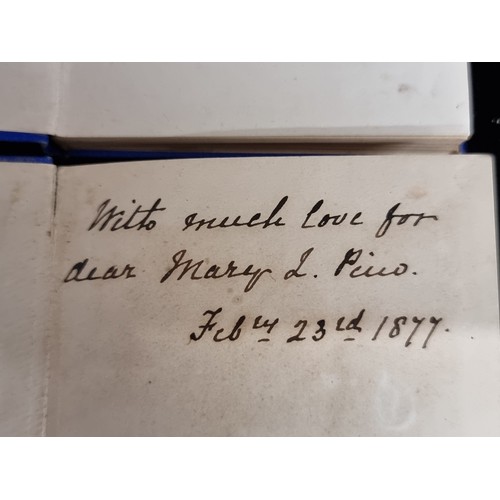 With much love for
dear Mary L. Pino.
Febry 23rd 1877.